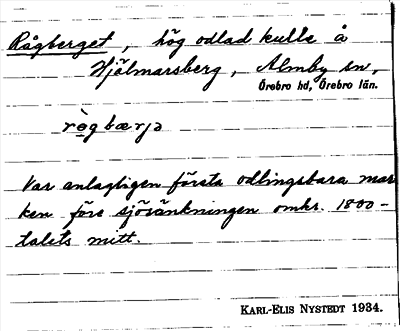 Rågberget, hög odlad kulle å
Hjälmarsberg, Almby sn,
Örebro hd, Örebro län.
rò̲gbærjə
Var antagligen första odlingsbara mar
ken före sjösänkningen omkr. 1800-
talets mitt.
KARL-ELIS NYSTEDT 1934.